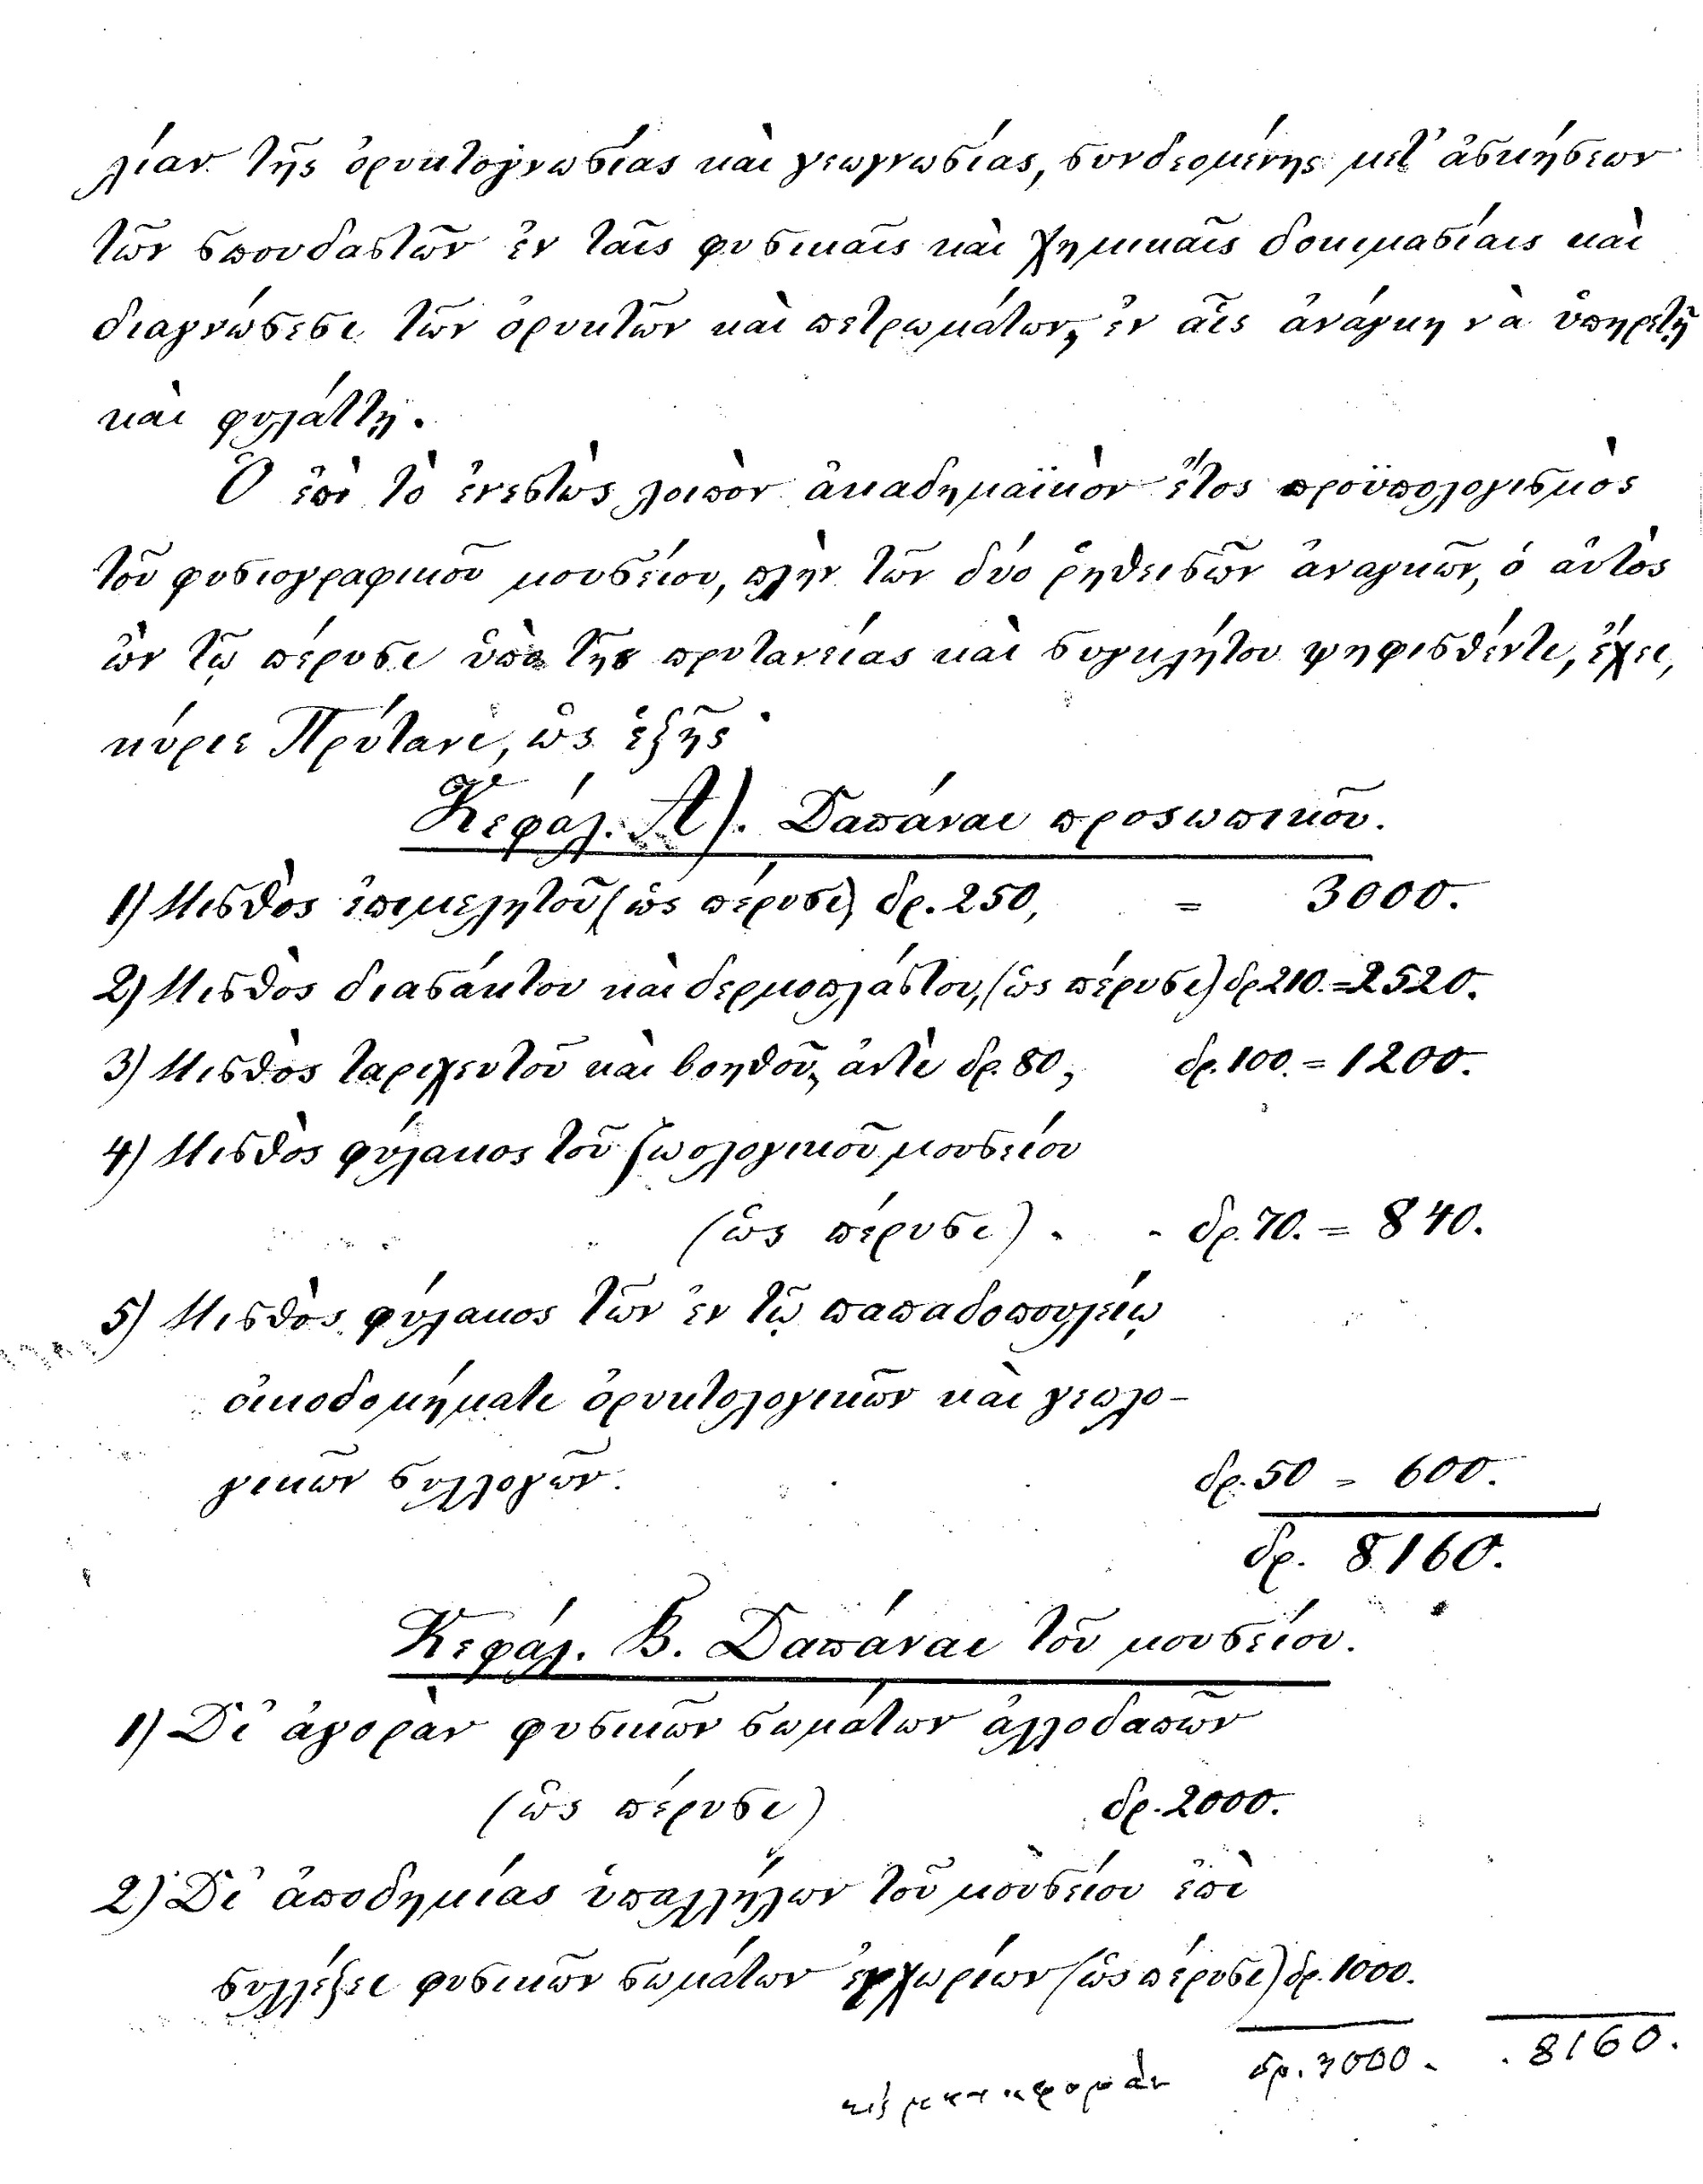 λίαν τῆς ὀρυκτογνωσίας καὶ γεωγνωσίας, συνδεομένης μετ' ἀσκήσεων
τῶν σπουδαστῶν ἐν ταῖς φυσικαῖς καὶ χημικαῖς δοκιμασίαις καὶ
διαγνώσεσι τῶν ὀρυκτῶν καὶ πετρωμάτων, ἐν αἷς ἀνάγκη νὰ ὑπηρετῇ
καὶ φυλάττῃ.
Ὁ ἐπὶ τὸ ἐνεστὼς λοιπὸν ἀκαδημαϊκὸν ἔτος προϋπολογισμὸς
τοῦ φυσιογραφικοῦ μουσείου, πλὴν τῶν δύο ῥηθεισῶν ἀναγκῶν, ὁ αὐτὸς
ὢν τῷ πέρυσι ὑπὸ τῆς πρυτανείας καὶ συγκλήτου ψηφισθέντι, ἔχει,
κύριε Πρύτανι, ὡς ἑξῆς·
Κεφάλ. Α). Δαπάναι προσωπικοῦ.
1) Μισθὸς ἐπιμελητοῦ (ὡς πέρυσι) δρ. 250, = 3000.
2) Μισθὸς διασάκτου καὶ δερμοπλάστου, (ὡς πέρυσι) δρ. 210. = 2520.
3) Μισθὸς ταριχευτοῦ καὶ βοηθοῦ, ἀντὶ δρ. 80, δρ. 100. = 1200.
4) Μισθὸς φύλακος τοῦ ζωολογικοῦ μουσείου
(ὡς πέρυσι) . . δρ. 70. = 840.
5) Μισθὸς φύλακος τῶν ἐν τῷ παπαδοπουλείῳ
οἰκοδομήματι ὀρυκτολογικῶν καὶ γεωλο-
γικῶν συλλογῶν. δρ. 50 = 600.
δρ. 8160.
Κεφάλ. Β. Δαπάναι τοῦ μουσείου.
1) Δι' ἀγορὰν φυσικῶν σωμάτων ἀλλοδαπῶν
(ὡς πέρυσι) δρ. 2000.
2) Δι' ἀποδημίας ὑπαλλήλων τοῦ μουσείου ἐπὶ
συλλέξει φυσικῶν σωμάτων ἐγχωρίων (ὡς πέρυσι) δρ. 1000.
εἰς μεταφορὰν δρ. 3000. . 8160.